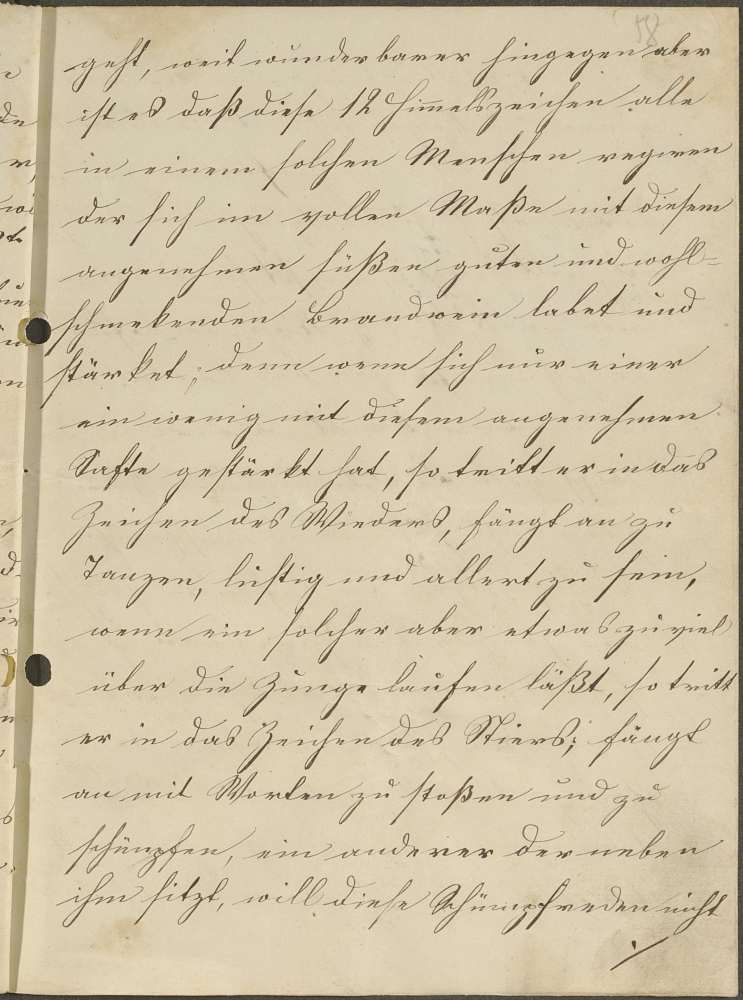 58
geht, weit wunderbarer hingegen aber
ist es daß diese 12 Himmelszeichen alle
in einem solchen Menschen regiren
der sich im vollen Maße mit diesem
angenehmen süßen guten und wohl=
schmekenden Brandwein labet und
stärket; denn wenn sich nur einer
ein wenig mit diesem angenehmen
Safte gestärkt hat, so tritt er in das
Zeichen des Wieders, fängt an zu
Tanzen, lustig und allert zu sein,
wenn ein solcher aber etwas zuviel
über die Zunge laufen läßt, so tritt
er in das Zeichen des Stiers; fängt
an mit Worten zu stoßen und zu
schümpfen, ein anderer der neben
ihm sitzt, will diese Schümpfreden nicht
./.